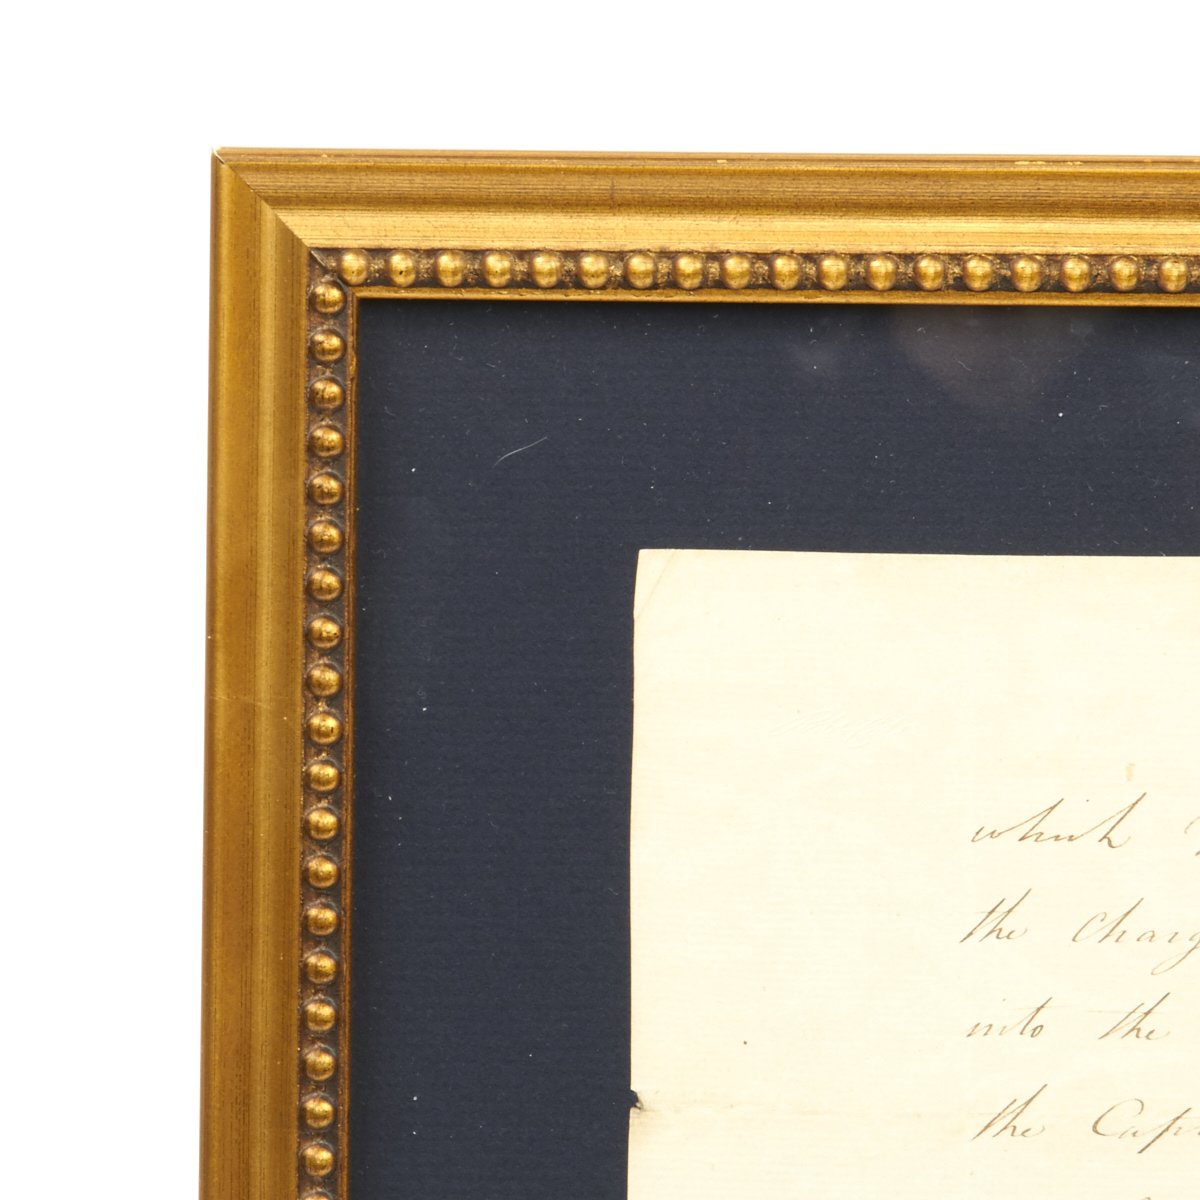 which
the charg
into the
the Cap